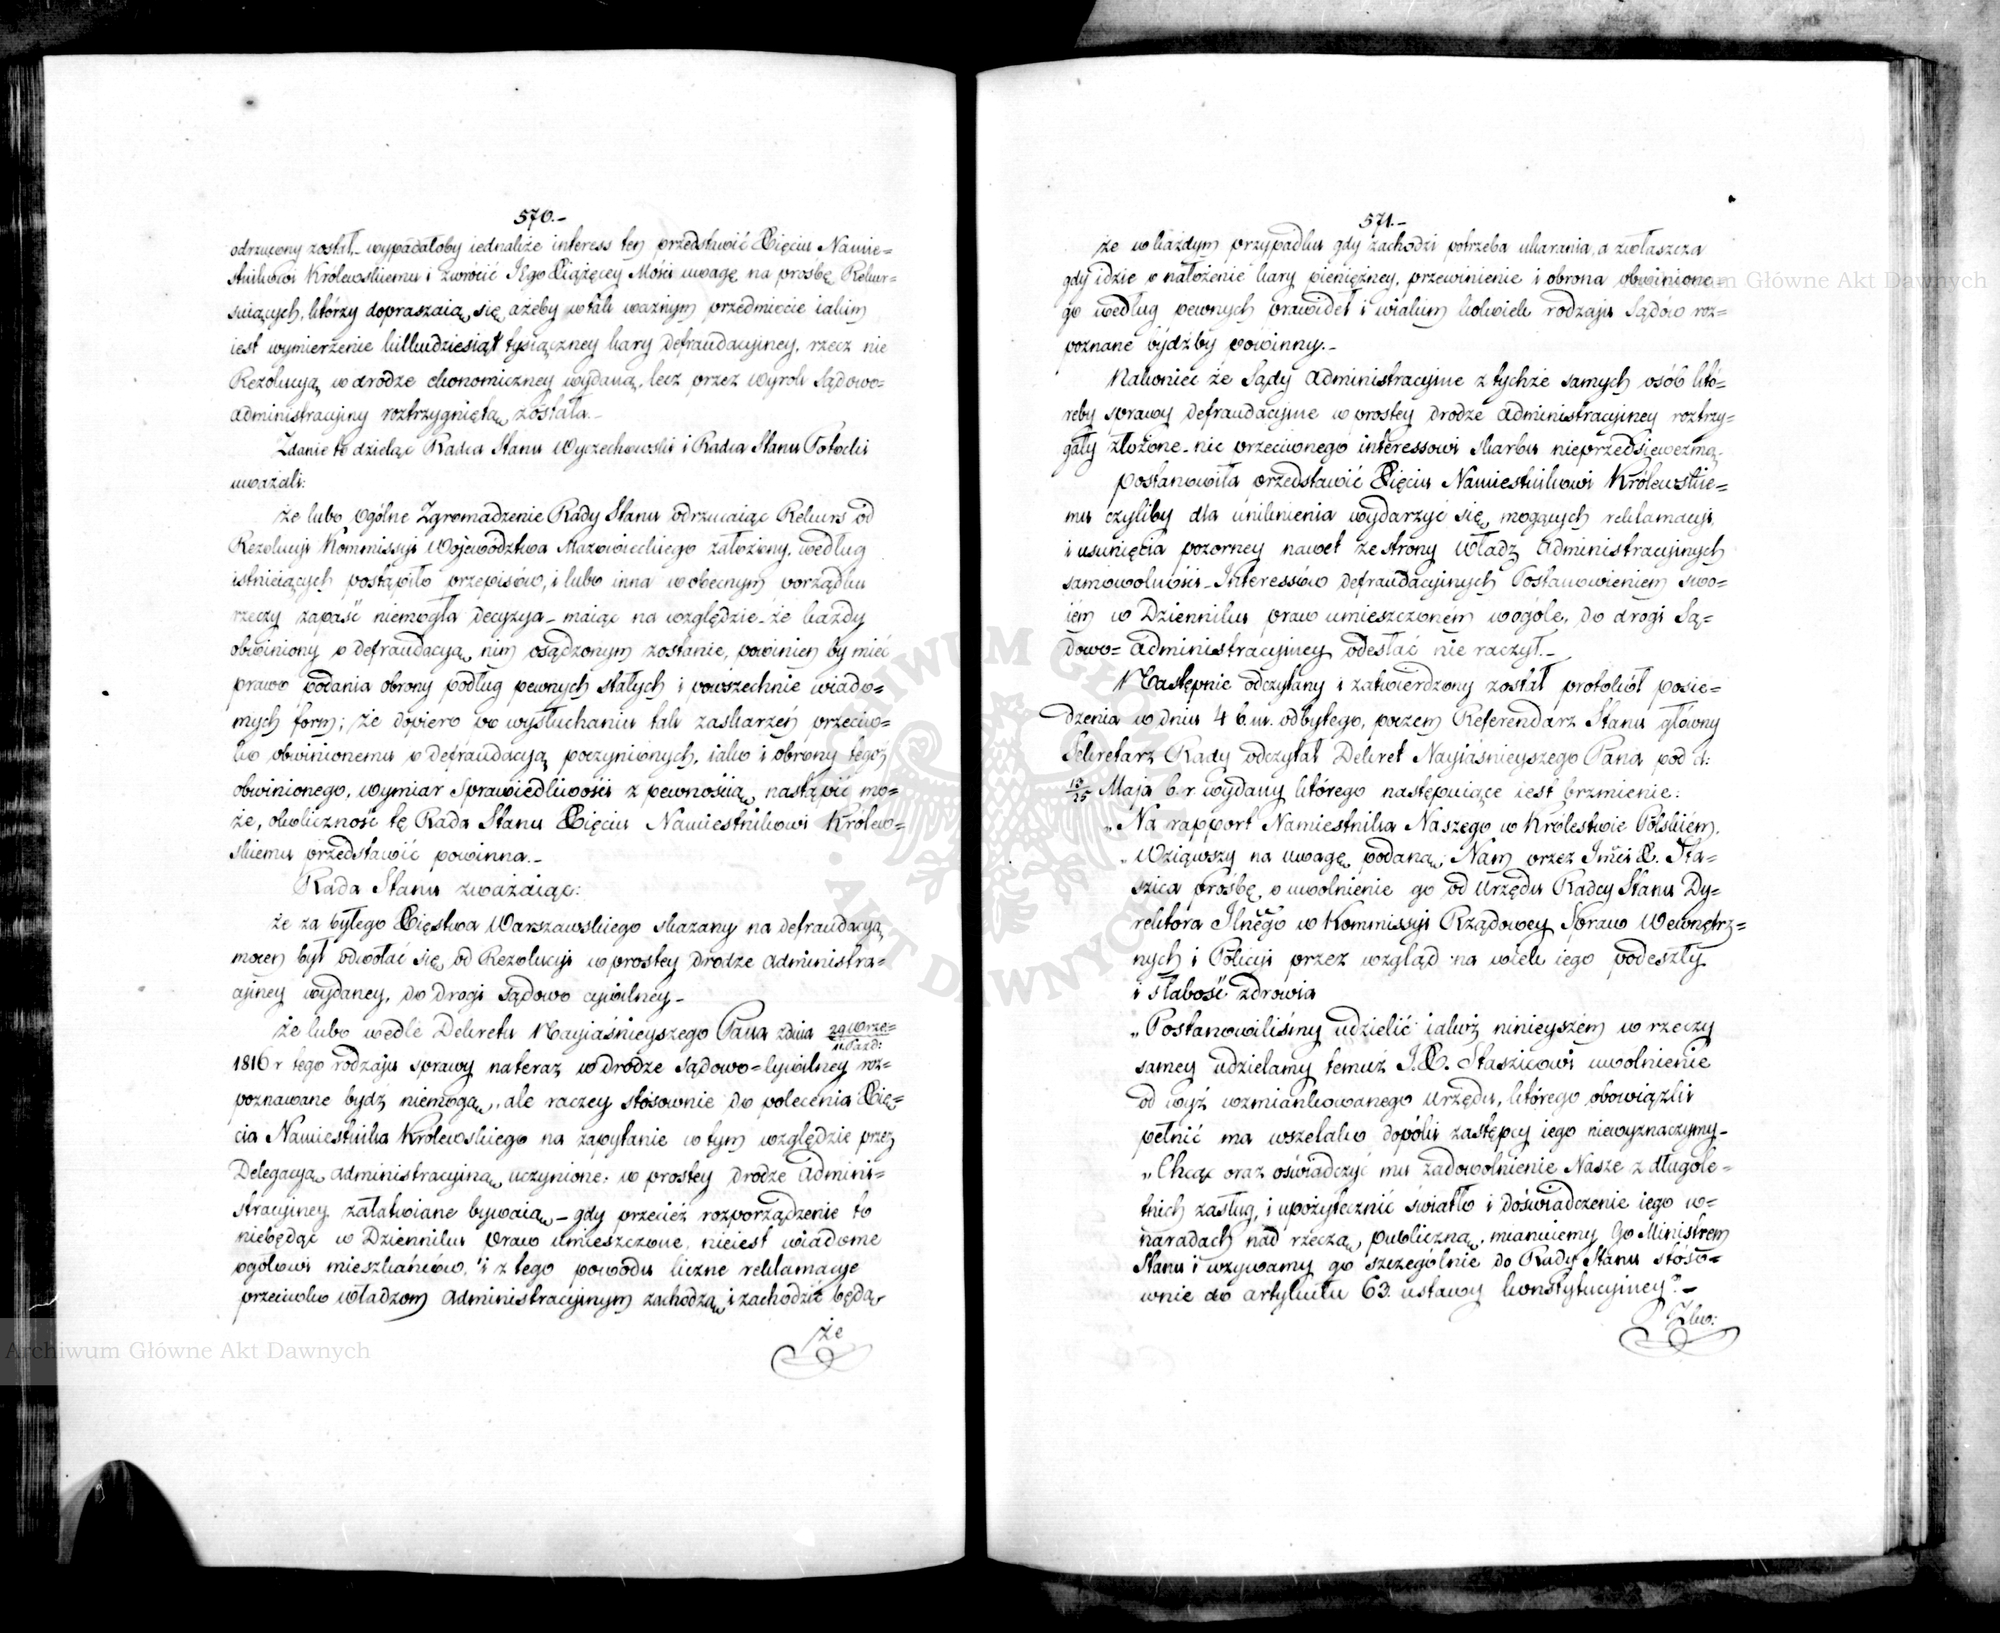 570.-
odrzucony został,- wypadałoby iednakże interess ten przedstawić Xięciu Namie=
stnikowi Królewskiemu i zwrócić JEgo Xiążęcey Mości uwagę na prośbę Rekur=
suiących, którzy dopraszaią się ażeby w tak ważnym przedmiocie iakim
iest wymierzenie kilkudziesiąt tysiączney kary defraudacyiney, rzecz nie
Rezolucyą w drodze ekonomiczney wydaną, lecz przez wyrok Sądowo=
administracyiny roztrzygniętą została.-
Zdanie to dzieląc Radca Stanu Wyczechowski i Radca Stanu Potocki
uważali:
że lubo Ogólne Zgromadzenie Rady Stanu odrzucaiąc Rekurs od
Rezolucyi Kommissyi Województwa Mazowieckiego założony, według
istnieiących postąpiło przepisów, i lubo inna w obecnym porządku
rzeczy zapaść niemogła decyzya - maiąc na względzie - że każdy
obwiniony o defraudacyą, nim osądzonym zostanie, powinien by mieć
prawo podania obrony podług pewnych stałych i powszechnie wiado=
mych form; że dopiero po wysłuchaniu tak zaskarżeń przeciw=
ko obwinionemu o defraudacyą poczynionych, iako i obrony tegoż
obwinionego, wymiar sprawiedliwości z pewnością nastąpić mo=
że, okoliczność tę Rada Stanu Xięciu Namiestnikowi Królew=
skiemu przedstawić powinna.-
Rada Stanu zważaiąc:
że za byłego Xięstwa Warszawskiego skazany na defraudacyą
mocen był odwołać się od Rezolucyi w prostey drodze administra=
cyiney wydaney, do drogi sądowo cywilney -
że lubo wedle Dekretu Nayiaśnieyszego Pana z dnia 29 Wrze:/11 Paźd:
1816 r tego rodzaju sprawy na teraz w drodze sądowo=cywilney roz=
poznawane bydź niemogą, ale raczey stosownie do polecenia Xię=
cia Namiestnika Królewskiego na zapytanie w tym względzie przez
Delegacyą administracyiną uczynione; w prostey drodze admini=
stracyiney załatwiane bywaią - gdy przecież rozporządzenie to
niebędąc w Dzienniku Praw umieszczone, nieiest wiadome
ogółowi mieszkańców, i z tego powodu liczne reklamacye
przeciwko władzom administracyinym zachodzą, i zachodzić będą,
że
571.-
że w każdym przypadku gdy zachodzi potrzeba ukarania, a zwłaszcza
gdy idzie o nałożenie kary pieniężney, przewinienie i obrona obwinione=
go według pewnych prawideł i w iakim kolwiek rodzaju Sądów roz=
poznane bydźby powinny.-
Nakoniec że Sądy administracyine z tychże samych osób któ=
reby sprawy defraudacyine w prostey drodze administracyiney roztrzy=
gały złożone - nic przeciwnego interessowi skarbu nieprzedsięwezmą.
postanowiła przedstawić Xięciu Namiestnikowi Królewskie=
mu czyliby dla uniknienia wydarzyć się mogących reklamacyi,
i usunięcia pozorney nawet ze strony Władz administracyinych
samowolności - Interessów defraudacyinych Postanowieniem swo=
iem w Dzienniku praw umieszczoném wogóle, do drogi Są=
dowo= administracyiney odesłać nie raczył.-
Następnie odczytany i zatwierdzony został protokół posie=
dzenia w dniu 4 b. m. odbytego, poczem Referendarz Stanu główny
Sekretarz Rady odczytał Dekret Nayiaśnieyszego Pana pod d:
13/25 Maja b. r. wydany którego następuiące iest brzmienie:
„Na rapport Namiestnika Naszego w Królestwie Polskiém.
„Wziąwszy na uwagę podaną Nam przez Jmci X. Sta=
szica prośbę, o uwolnienie go od Urzędu Radcy Stanu Dy=
rektora Jlnego w Kommissyi Rządowey Spraw Wewnętrz=
nych i Policyi przez wzgląd na wiek iego podeszły
i słabość zdrowia
„Postanowiliśmy udzielić iakoż ninieyszém w rzeczy
samey udzielamy temuż J. X. Staszicowi uwolnienie
od wyż wzmiankowanego Urzędu, którego obowiązki
pełnić ma wszelako dopóki zastępcy iego niewyznaczymy -
„Chcąc oraz oświadczyć mu zadowolnienie Nasze z długole=
tnich zasług, i upożytecznić światło i doświadczenie iego w=
naradach nad rzeczą publiczną, mianuiemy Go Ministrem
Stanu i wzywamy go szczególnie do Rady Stanu stoso=
wnie do artykułu 63. ustawy konstytucyiney” -
Archiwum Główne Akt Dawnych
Archiwum Główne Akt Dawnych
ARCHIWUM GŁÓWNE AKT DAWNYCH